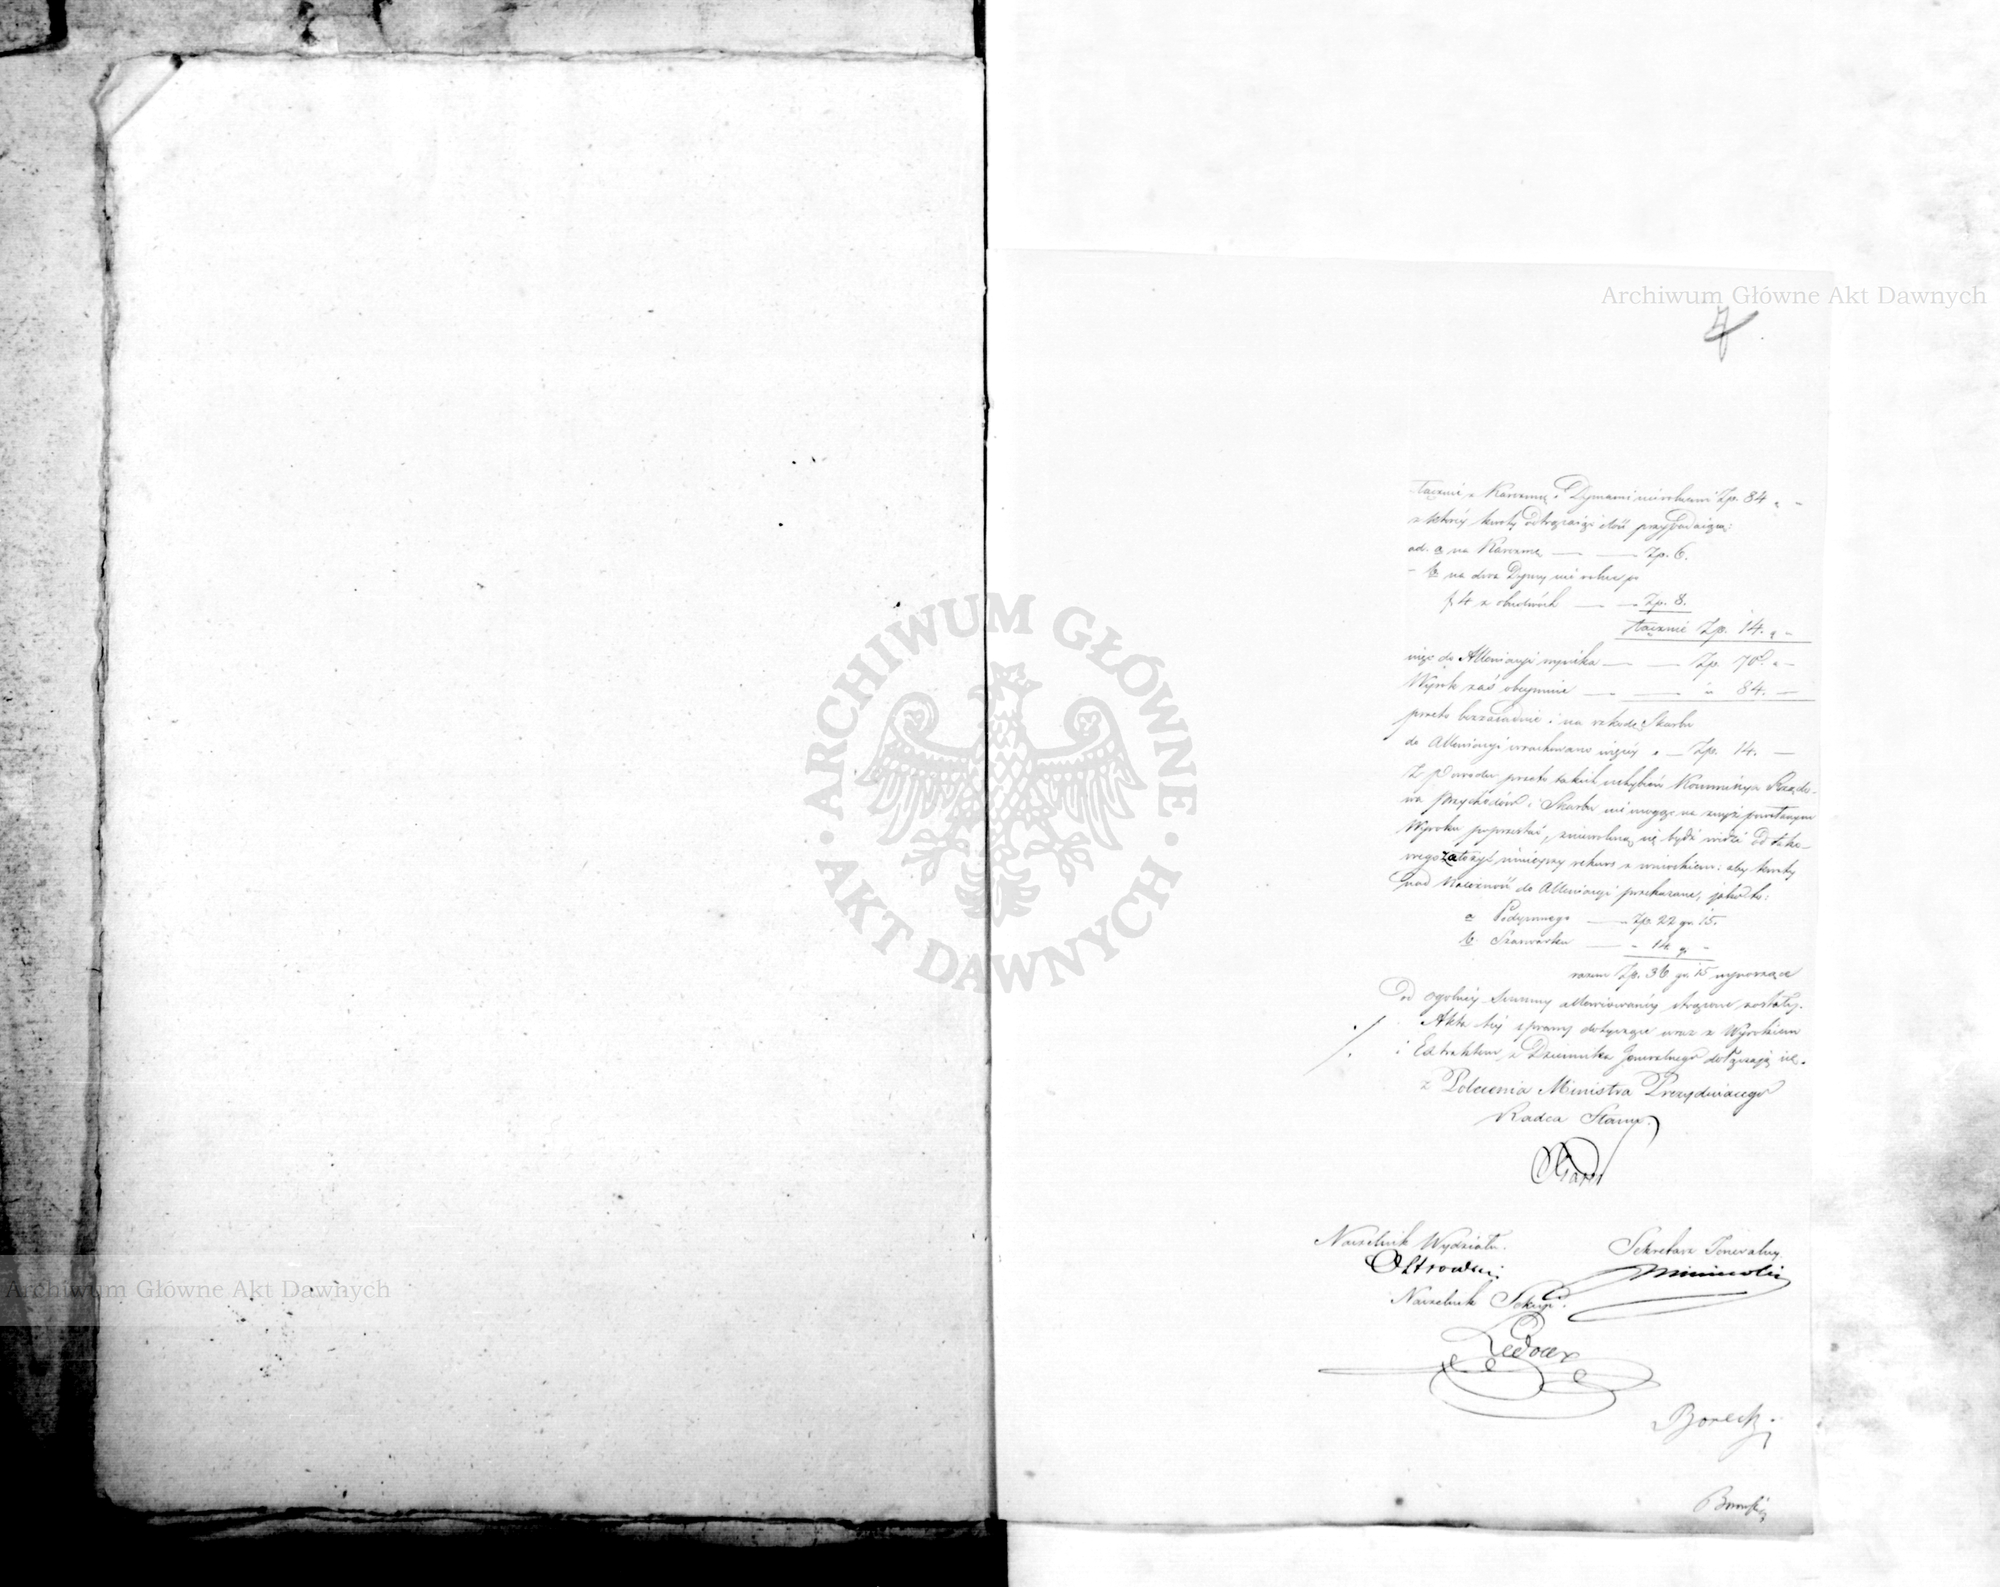 Archiwum Główne Akt Dawnych
7
łącznie z Karczmą i Dymami nierolnemi Zp. 84 „ –
z której kwoty odtrąciwszy ilość przypadaiącą:
ad. a na Karczmę — — Zp. 6.
– b na dwa Dymy nie rolne po
f. 4 z obudwóch — — Zp. 8.
łącznie Zp. 14. „ –
więc do Allewiacyi wynika — — Zp. 70. „ –
Wyrok zaś obeymuie — — „ 84. –
przeto bezzasadnie i na szkodę Skarbu
do Allewiacyi wrachowano więcey „ – Zp. 14. –
Z powodu przeto takich uchybień Kommissya Rządo-
wa Przychodów i Skarbu nie mogąc na wyż powołanym
Wyroku poprzestać, zniewoloną się bydź widzi od tako-
wego założyć ninieyszy rekurs z wnioskiem: aby kwoty
nad należność do Allewiacyi przekazane, jakoto:
a Podymnego — Zp. 22 gr. 15.
b. Szarwarku — „ 14 „ –
razem Zp. 36 gr. 15 wynoszące
od ogólney Summy allewiowaney strącone zostały.
Akta tey sprawy dotyczące wraz z Wyrokiem
i Extraktem z Dziennika Generalnego dołączają się.
z Polecenia Ministra Prezyduiącego
Radca Stanu
Naczelnik Wydziału.
Ostrowski
Sekretarz Jeneralny
Naczelnik Sekcyi
Ledoux
Borecki
ARCHIWUM GŁÓWNE
AKT DAWNYCH
Archiwum Główne Akt Dawnych